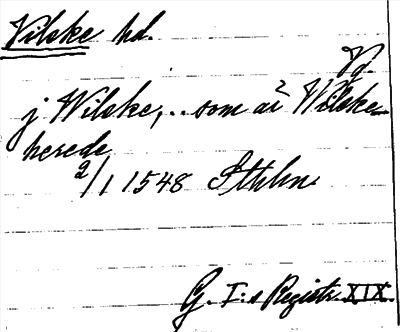 Vilske hd.
Vg.
j Wilske, .. som är i Wilske-
herede
2/1 1548 Sthlm
G. I:s Registr. XIX.